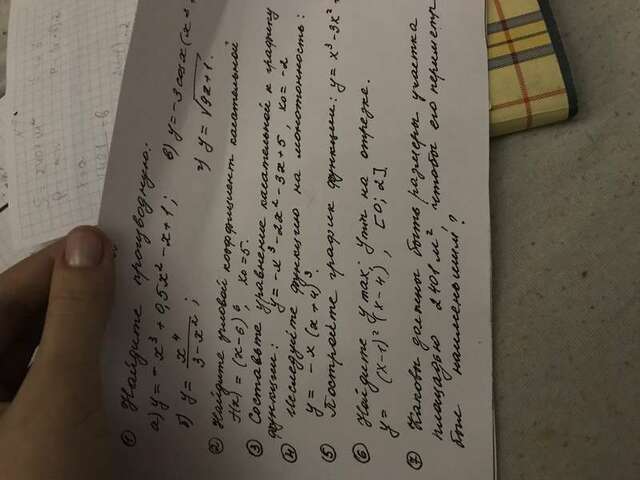 S = 2401 м²
① Найдите производную:
а) y = - x³ + 0,5x² - x + 1;
в) y = -3 cos x (x² +
б) y = x⁴ / (3 - x²);
г) y = √9x+1.
② Найдите угловой коэффициент касательной
f(x) = (x-6)⁶, x₀ = 5.
③ Составьте уравнение касательной к графику
функции: y = -x³ - 2x² - 3x + 5, x₀ = -2
④ Исследуйте функцию на монотонность:
y = - x (x+4)³.
⑤ Постройте график функции: y = x³ - 3x² +
⑥ Найдите y max; y min на отрезке.
y = (x-1)² (x-4), [0; 2]
⑦ Каковы должны быть размеры участка
площадью 2401 м², чтобы его периметр
был наименьшим?